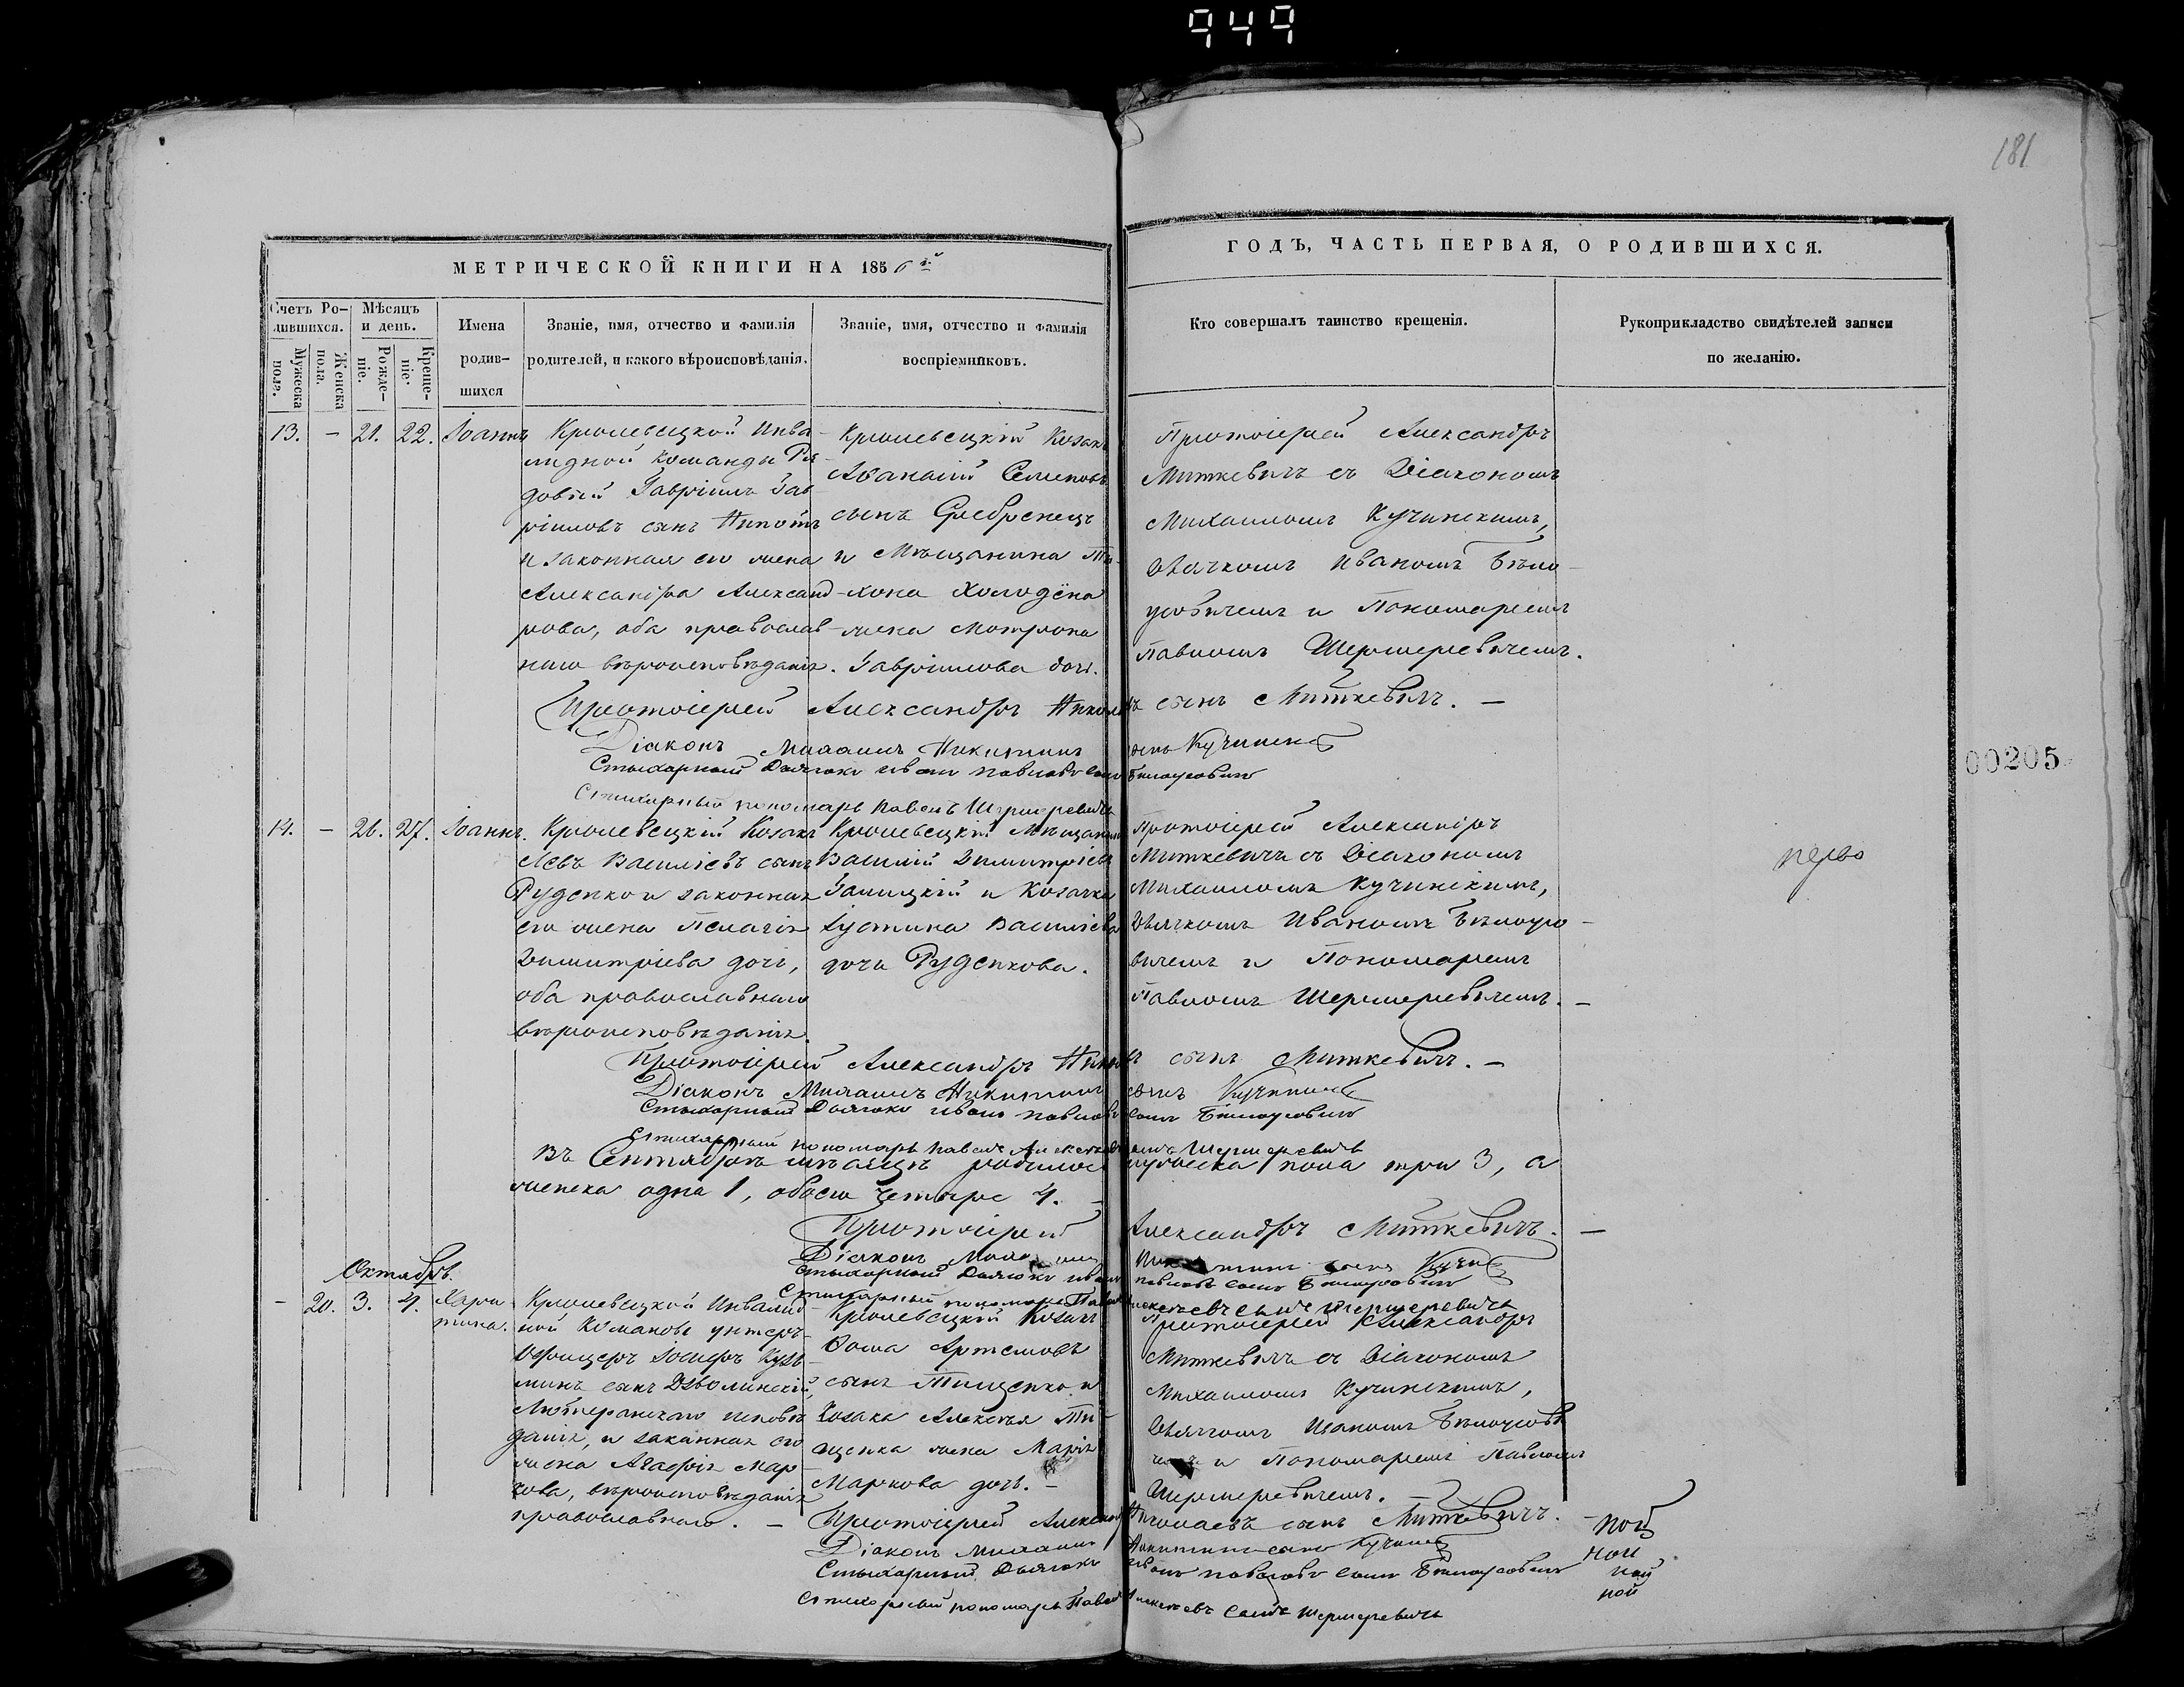 949
181
МЕТРИЧЕСКОЙ КНИГИ НА 1856й
ГОДЪ, ЧАСТЬ ПЕРВАЯ, О РОДИВШИХСЯ.
Счетъ Ро-
дившихся.
Мужеска
пола.
Женска
пола.
Мѣсяцъ
и день.
Рожде-
ніе.
Креще-
ніе.
Имена
родив-
шихся
Званіе, имя, отчество и фамилія
родителей, и какого вѣроисповѣданія.
Званіе, имя, отчество и фамилія
воспріемниковъ.
Кто совершалъ таинство крещенія.
Рукоприкладство свидѣтелей записи
по желанію.
13. - 21. 22. Іоаннъ
Кролевецкой Инва-
лидной команды Ря-
довый Гавріилъ Гав-
ріиловъ сынъ
и законная его жена
Александра Александ-
рова, оба православ-
наго вѣроисповѣданія.
Кролевецкій Козакъ
Аѳанасій Семеновъ
сынъ Сребренецъ
и Мѣщанина Ти-
хона Холодёна
жена Мотрона
Гавріилова дочь.
Протоіерей Александръ
Миткевичъ съ Діакономъ
Михаиломъ Кучинскимъ,
Дьячкомъ Иваномъ Бѣло-
усовичемъ и Пономаремъ
Павломъ Шермеревичемъ.
Протоіерей Александръ сынъ Миткевичъ. -
Діаконъ Михаилъ Никитинъ сынъ
Стихарный Дьячокъ Иванъ Павловъ сынъ Бѣлоусовичъ
Стихарный пономарь Павелъ Шермеревичъ
00205
14. - 26. 27. Іоаннъ.
Кролевецкій Козакъ
Левъ Василіевъ сынъ
Руденко и законная
его жена Пелагія
Димитріева дочь,
оба православнаго
вѣроисповѣданія.
Кролевецкій Мѣщанинъ
Василій Димитріевъ
Галицкій и Козачка
Іустина Василіева
дочь Руденкова.
Протоіерей Александръ
Миткевичъ съ Діакономъ
Михаиломъ Кучинскимъ,
Дьячкомъ Иваномъ Бѣлоусо-
вичемъ и Пономаремъ
Павломъ Шермеревичемъ. -
перво
Протоіерей Александръ сынъ Миткевичъ. -
Діаконъ Михаилъ Никитинъ сынъ
Стихарный Дьячокъ Иванъ Павловъ сынъ Бѣлоусовичъ
Стихарный пономарь Павелъ Алексѣевъ сынъ Шермеревичъ
Въ Сентябрѣ мѣсяцѣ родилось мужеска пола три 3, а
женска одна 1, обоего четыре 4. -
Протоіерей Александръ Миткевичъ. -
Діаконъ Михаилъ сынъ
Стихарный Дьячокъ Иванъ Павловъ сынъ Бѣлоусовичъ
Стихарный пономарь Павелъ Алексѣевъ сынъ Шермеревичъ
Октябрь.
- 20. 3. 4. Хари-
тина.
Кролевецкой Инвалид-
ной Команды унтеръ-
Офицеръ Іосифъ Кузь-
минъ сынъ Дзволинскій,
Лютеранскаго исповѣ-
данія, и законная его
жена Агафія Мар-
кова, вѣроисповѣданія
православнаго. -
Кролевецкій Козакъ
Ѳома Артемовъ
сынъ Тищенко и
Козака Алексѣя Ти-
щенка жена Марія
Маркова дочь. -
Протоіерей Александръ
Миткевичъ съ Діакономъ
Михаиломъ Кучинскимъ,
Дьячкомъ Иваномъ Бѣлоусови-
чемъ и Пономаремъ Павломъ
Шермеревичемъ. -
Протоіерей Александръ Николаевъ сынъ Миткевичъ. -
Діаконъ Михаилъ Никитинъ сынъ
Стихарный Дьячокъ Иванъ Павловъ сынъ Бѣлоусовичъ
Стихарный пономарь Павелъ Алексѣевъ сынъ Шермеревичъ
пой
ной
ной
ной